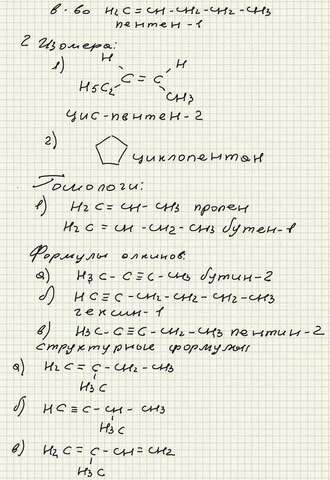 в-во H₂C=CH-CH₂-CH₂-CH₃
пентен-1
2 Изомера:
1) H H
C=C
H₅C₂ CH₃
цис-пентен-2
2) циклопентан
Гомологи:
в) H₂C=CH-CH₃ пропен
H₂C=CH-CH₂-CH₃ бутен-1
Формулы алкинов:
а) H₃C-C≡C-CH₃ бутин-2
б) HC≡C-CH₂-CH₂-CH₂-CH₃
гексин-1
в) H₃C-C≡C-CH₂-CH₃ пентин-2
структурные формулы
а) H₂C=C-CH₂-CH₃
H₃C
б) HC≡C-CH-CH₃
H₃C
в) H₂C=C-CH=CH₂
H₃C